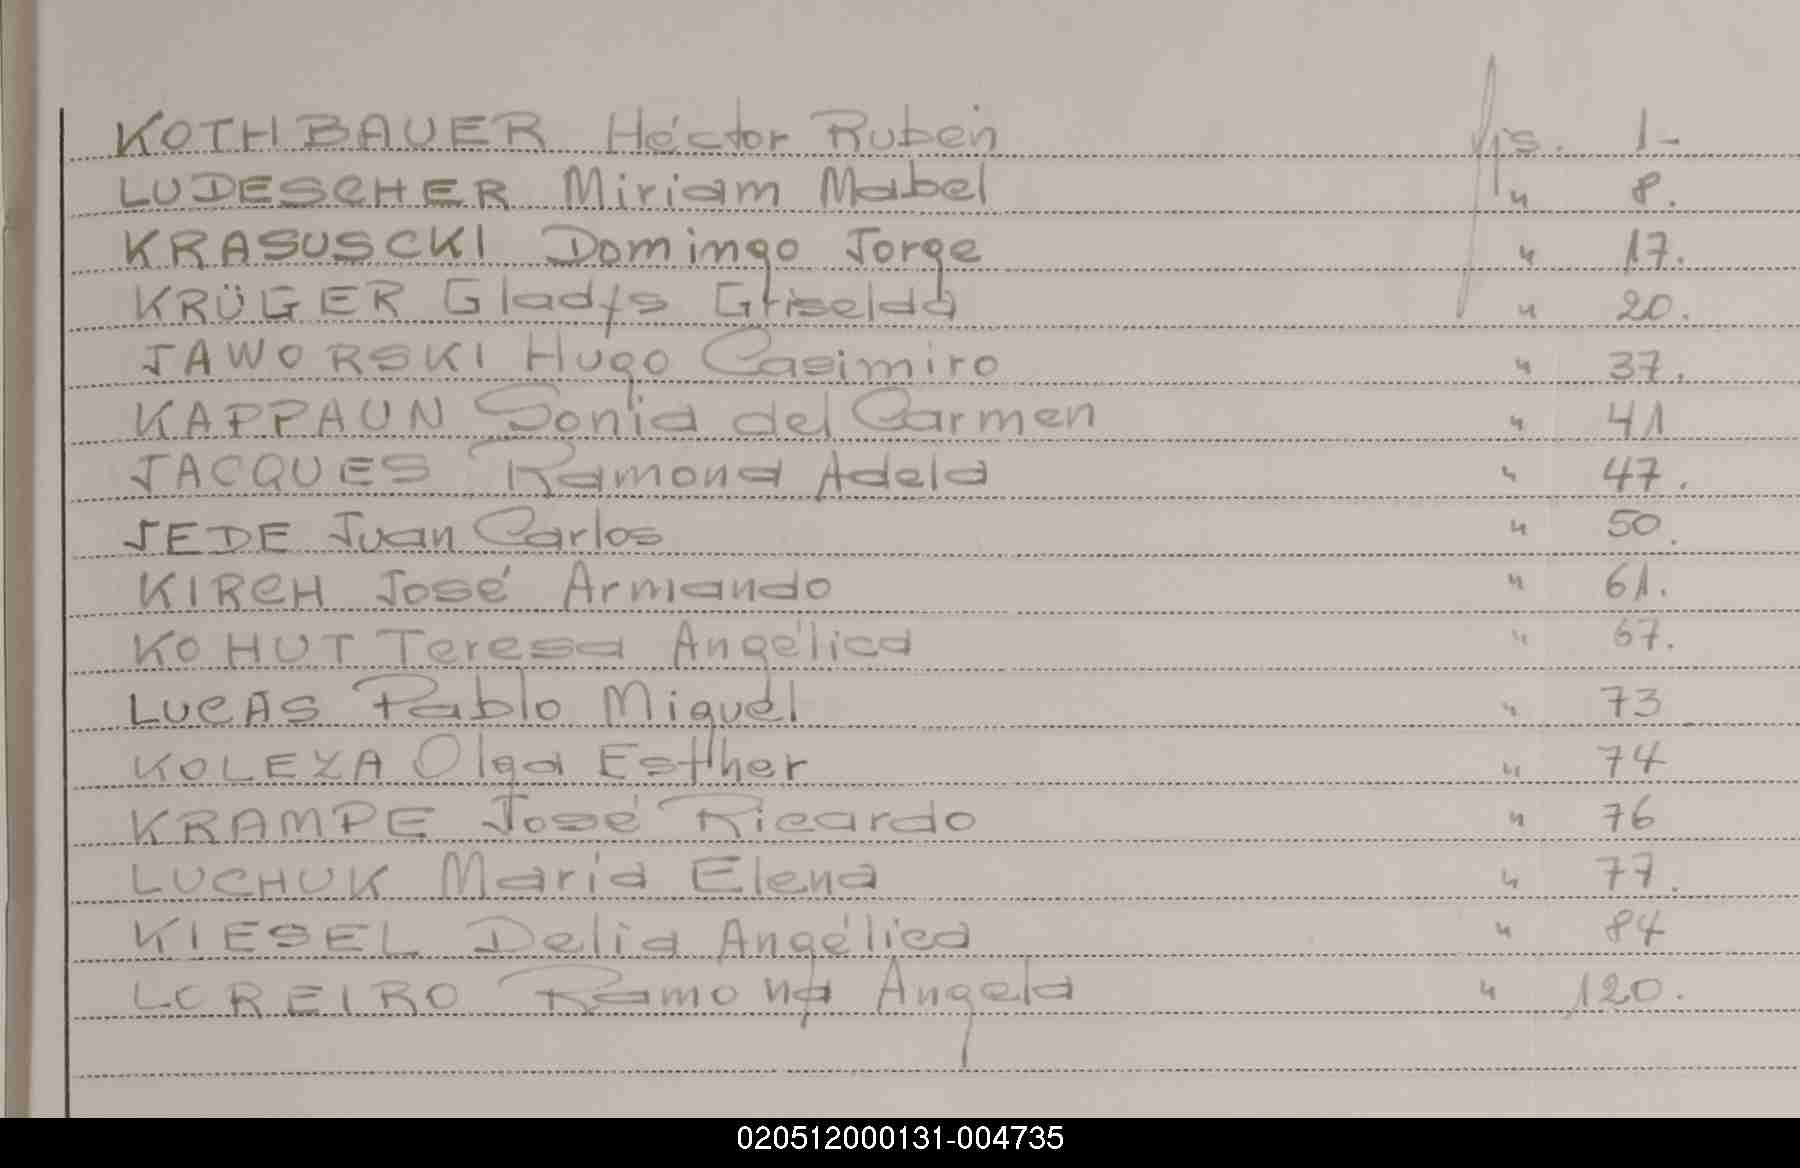 KOTHBAUER Héctor Rubén fjs. 1-
LUDESCHER Miriam Mabel " 8.
KRASUSCKI Domingo Jorge " 17.
KRÜGER Gladys Griselda " 20.
JAWORSKI Hugo Casimiro " 37.
KAPPAUN Sonia del Carmen " 41
JACQUES Ramona Adela " 47.
JEDE Juan Carlos " 50.
KIRCH José Armando " 61.
KOHUT Teresa Angélica " 67.
LUCAS Pablo Miguel " 73
KOLEZA Olga Esther " 74
KRAMPE José Ricardo " 76
LUCHUK Maria Elena " 77.
KIESEL Delia Angélica " 84
LOREIRO Ramona Angela " 120.
020512000131-004735